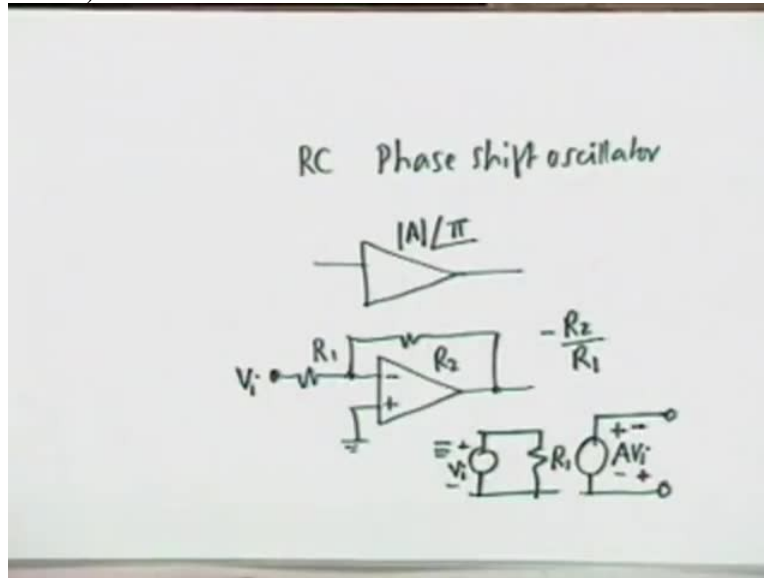 RC Phase shift oscillator
|A|∠π
R₁
R₂
-R₂/R₁
Vᵢ
-
+
≡ + Vᵢ -
R₁
AVᵢ
+ -
- +